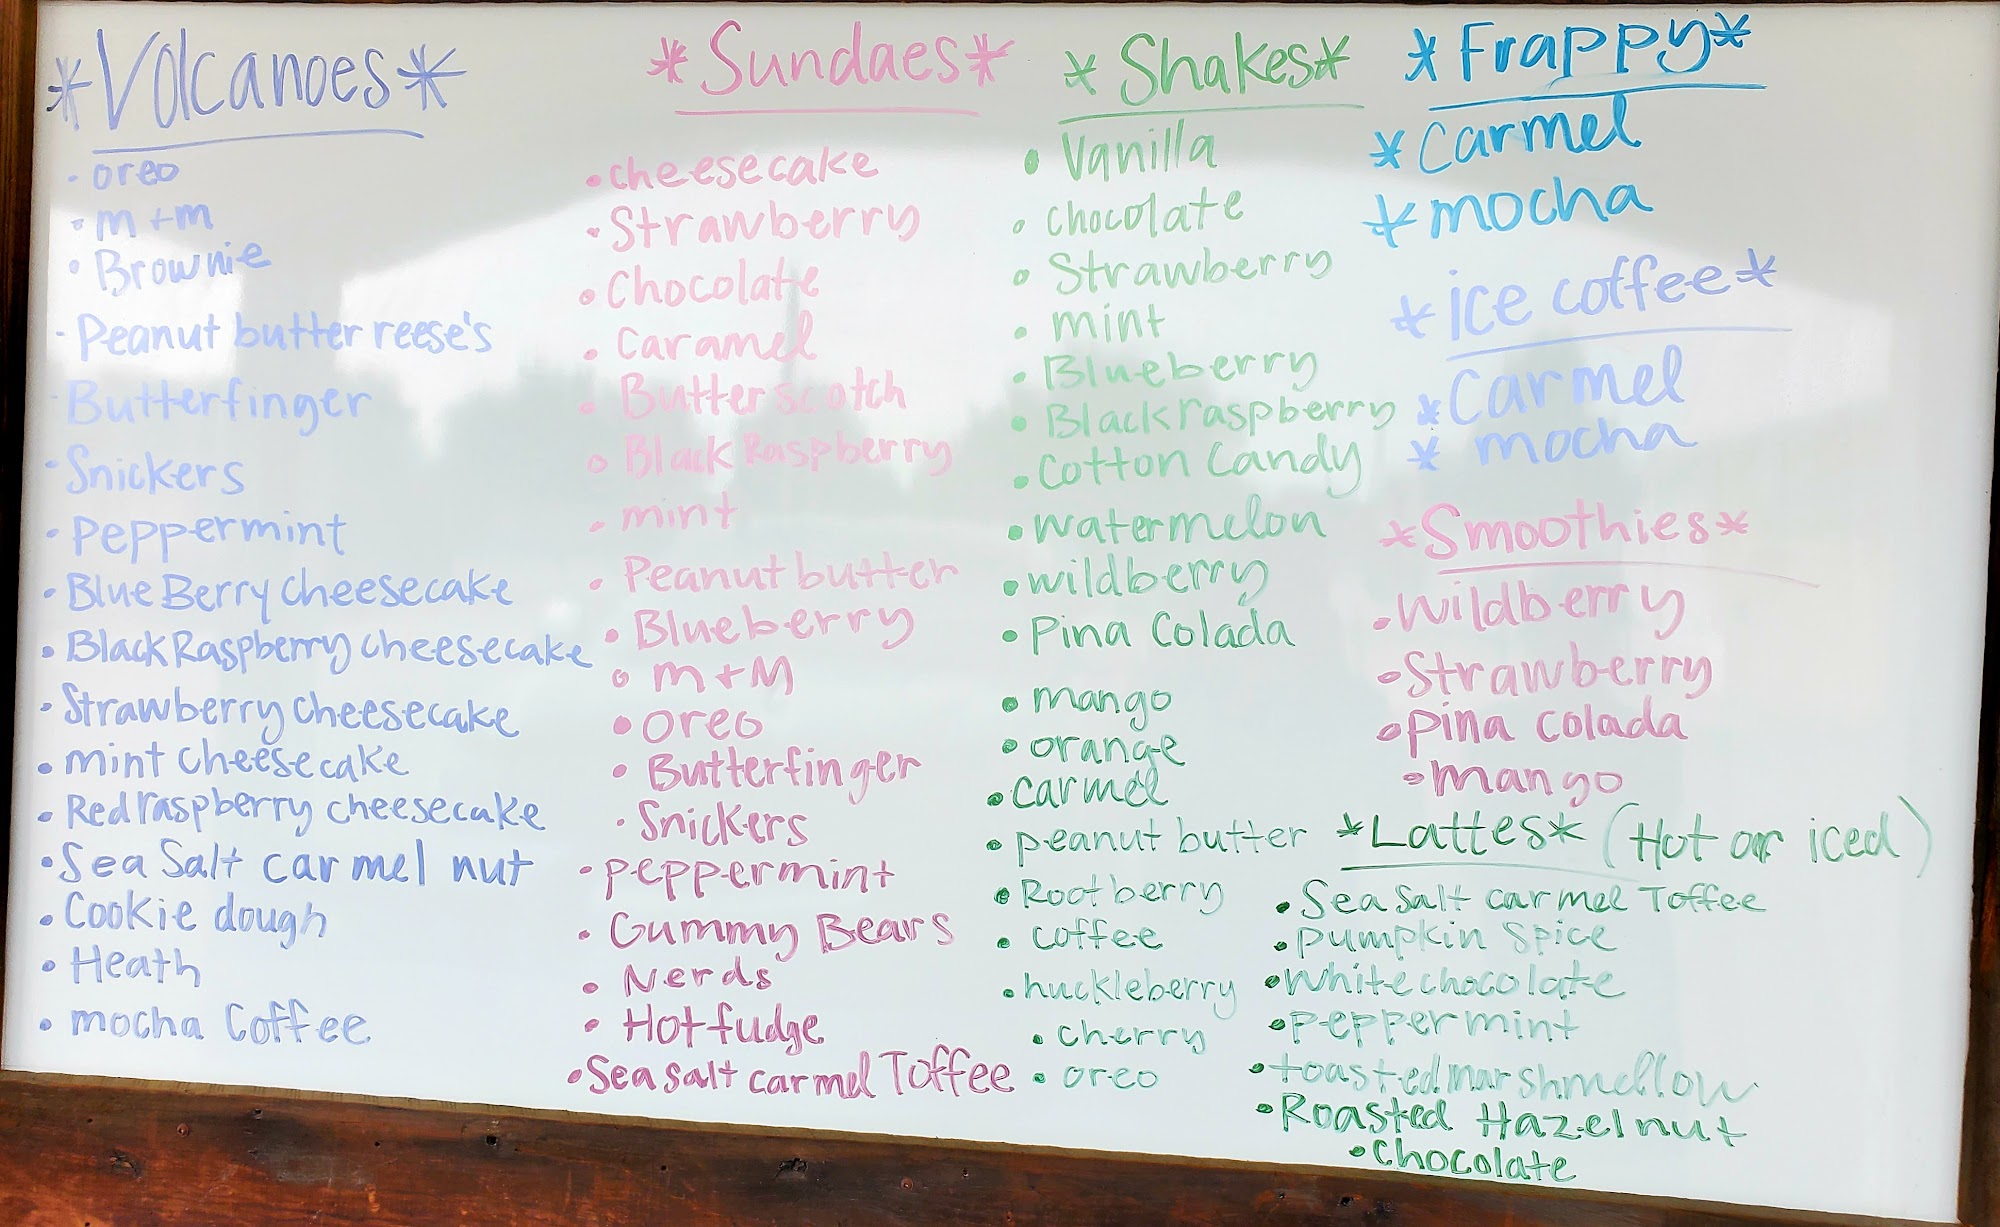 *Volcanoes*
· oreo
· m+m
· Brownie
· Peanut butter reese's
· Butterfinger
· Snickers
· Peppermint
· Blue Berry cheesecake
· Black Raspberry cheesecake
· Strawberry cheesecake
· mint cheesecake
· Red raspberry cheesecake
· Sea Salt carmel nut
· Cookie dough
· Heath
· mocha Coffee
*Sundaes*
· cheesecake
· Strawberry
· Chocolate
· Caramel
· Butterscotch
· Black Raspberry
· mint
· Peanut butter
· Blueberry
· m+M
· oreo
· Butterfinger
· Snickers
· peppermint
· Gummy Bears
· Nerds
· Hot fudge
· Sea salt carmel Toffee
*Shakes*
· Vanilla
· chocolate
· Strawberry
· mint
· Blueberry
· Black raspberry
· Cotton Candy
· watermelon
· wildberry
· Pina Colada
· mango
· orange
· carmel
· peanut butter
· Root berry
· coffee
· huckleberry
· cherry
· oreo
*Frappy*
*Carmel
*mocha
*ice coffee*
*Carmel
* mocha
*Smoothies*
· wildberry
· Strawberry
· pina colada
· mango
*Lattes* (Hot or iced)
· Sea Salt carmel Toffee
· pumpkin Spice
· white chocolate
· peppermint
· toasted marshmellow
· Roasted Hazelnut
· chocolate